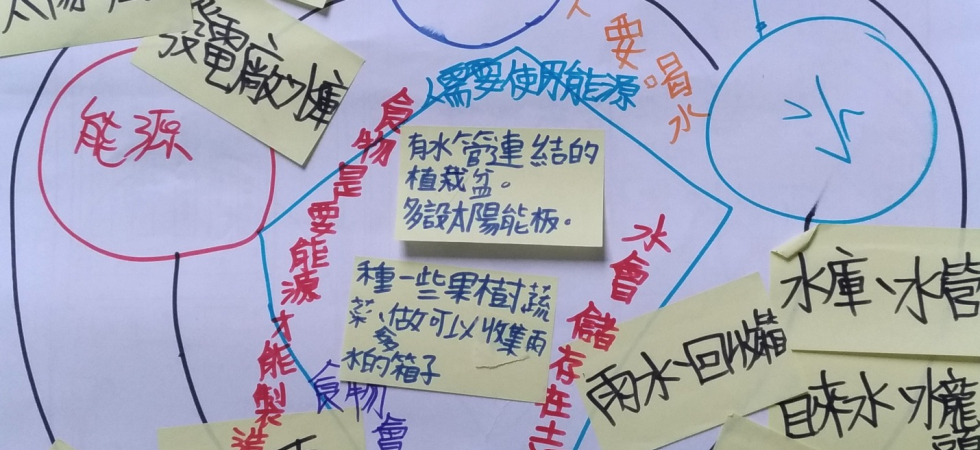 發電廠、水庫
能源
人需要使用能源
要喝水
水
食物是要能源才能製造
有水管連結的
植栽盆。
多設太陽能板。
種一些果樹蔬
菜、做可以收集雨
水的箱子
水會儲存在土
食物會
水庫、水管
雨水、回收箱
自來水、水龍
頭